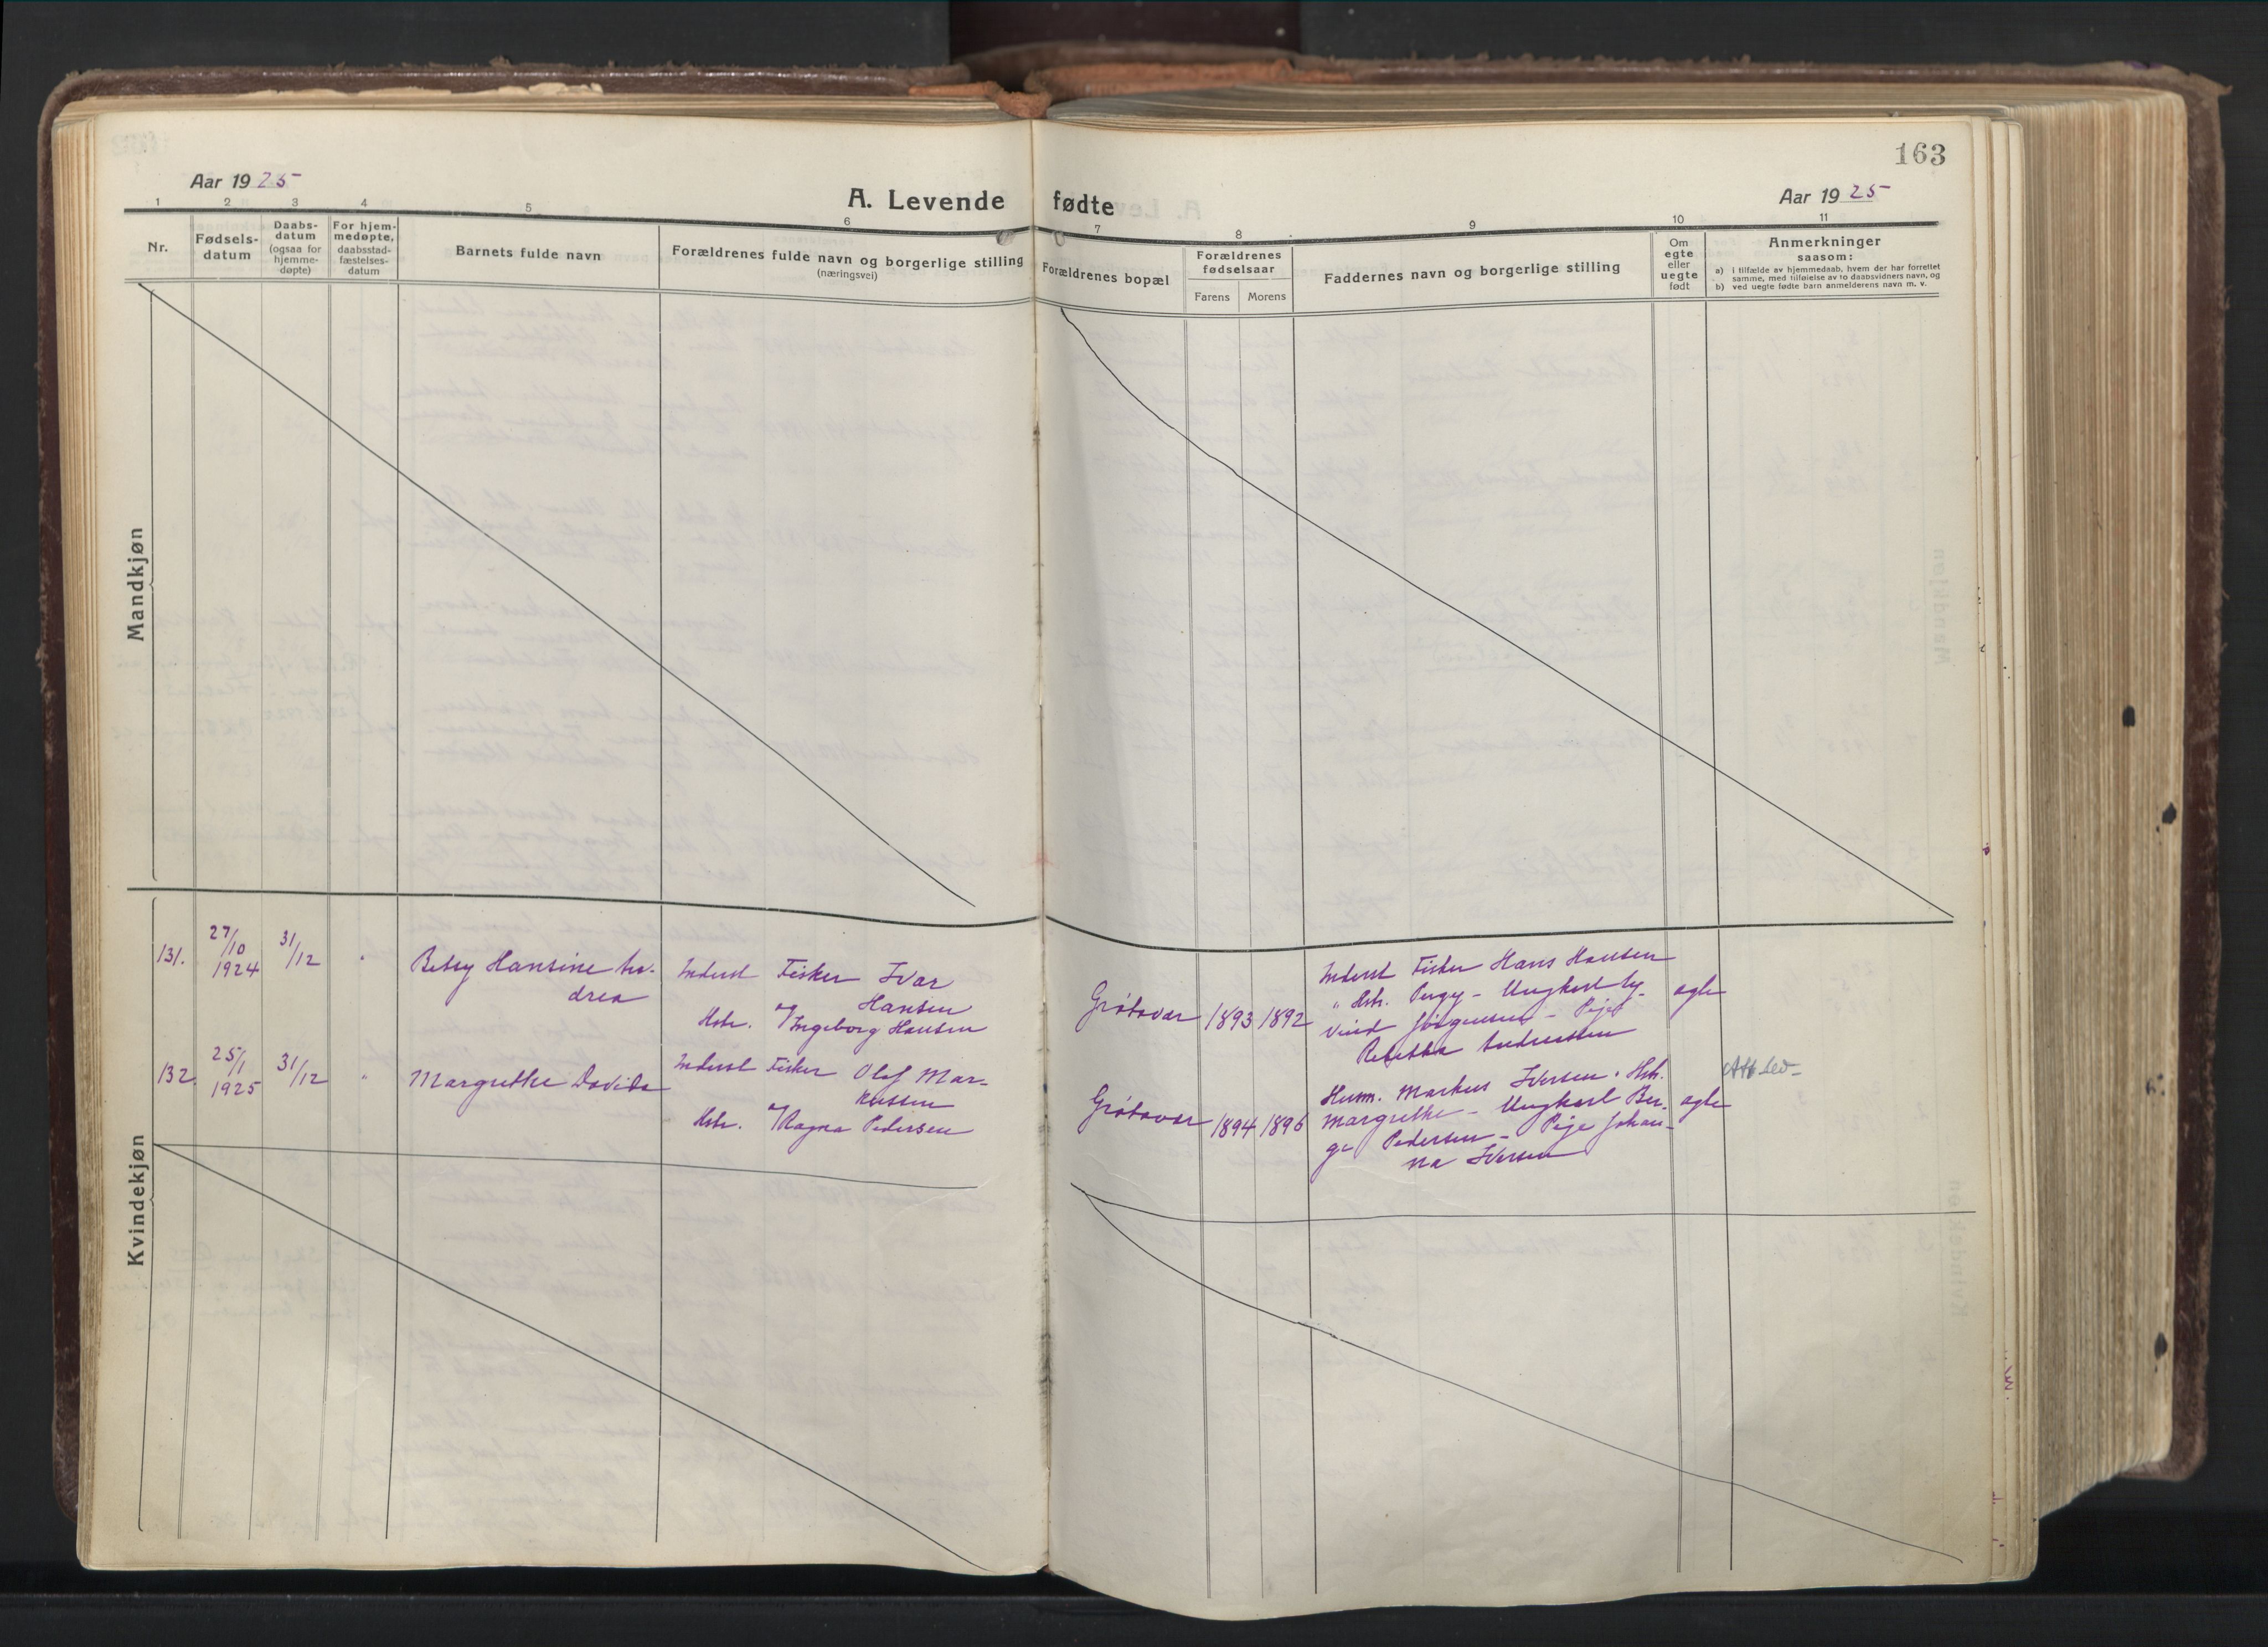 163
Aar 1925
A. Levende fødte
Aar 1925
1 2 3 4 5 6 7 8 9 10 11
Nr.
Fødsels-
datum
Daabs-
datum
(ogsaa for
hjemme-
døpte)
For hjem-
medøpte,
daabsstad-
fæstelses-
datum
Barnets fulde navn
Forældrenes fulde navn og borgerlige stilling
(næringsvei)
Forældrenes bopæl
Forældrenes
fødselsaar
Farens Morens
Faddernes navn og borgerlige stilling
Om
egte
eller
uegte
født
Anmerkninger
saasom:
a) i tilfælde av hjemmedaab, hvem der har forrettet
samme, med tilføielse av to daabsvidners navn, og
b) ved uegte fødte barn anmelderens navn m. v.
Mandkjøn
Kvindekjøn
131.
27/10
1924
31/12
"
Betsy Hansine An-
drea
Inderst Fisker Ivar
Hansen
Hstr. Ingeborg Hansen
Grøtavær 1893 1892
Inderst Fisker Hans Hansen
" Hstr. Pergy - Ungkarl Ey-
vind Jørgensen - Pige
Rebekka Andreassen
egte
132.
25/1
1925
31/12
"
Margrethe Davida
Inderst Fisker Olaf Mar-
kussen
Hstr. Ragna Pedersen
Grøtavær 1894 1896
Husm. Markus Iversen. Hstr.
Margrethe - Ungkarl Bir-
ge Pedersen - Pige Johan-
na Iversen
egte